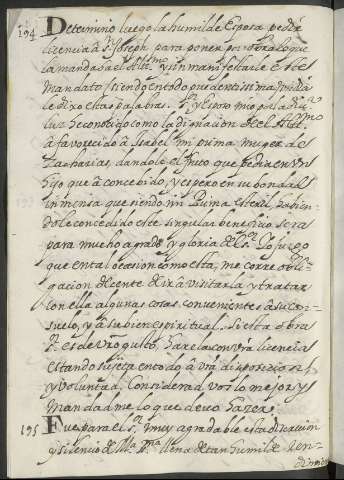 194 Determino luego la humilde esposa pedir
licencia a S. Joseph para poner por obra lo que
la mandava el Altmo y sin manifestarle este
mandato siendo en todo prudentissima, un dia
le dixo estas palabras. Sr y esposo mio por la divina
luz he conocido como la dignacion de el Altmo
a favorecido a Isabel mi prima muger de
Zacharias, dandole el fruto que pedia en un
hijo que a concebido, y espero en su bondad
inmensa que siendo mi prima esteril, habien-
dole concedido este singular beneficio sera
para mucho agrado y gloria del Sr. Yo juzgo
que en tal ocasion como esta, me corre obli-
gacion decente de ir a visitarla y tratar
con ella algunas cosas convenientes a su con-
suelo, y a su bien espiritual. Si esta obra
Sr. es de vro gusto, harela con vra licencia
estando sujeta en todo a vra disposicion
y voluntad. Considerad vos lo mejor y
mandadme lo que devo hazer.
195 Fue para el Sr. muy agradable esta discrecion
y silencio de Ma SSma llena de tan humilde ren-
dimien